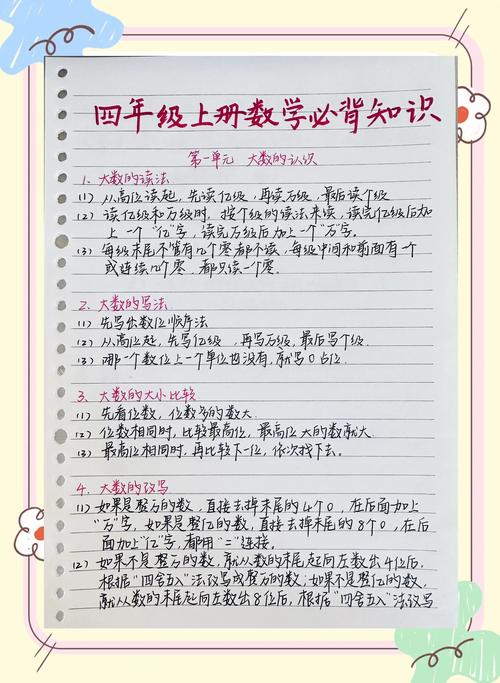 四年级上册数学必背知识
第一单元 大数的认识
1、大数的读法
(1) 从高位读起，先读亿级，再读万级，最后读个级
(2) 读亿级和万级时，按个级的读法来读，读完亿级后加
上一个“亿”字，读完万级后加上一个“万”字。
(3) 每级末尾不管有几个零都不读，每级中间和前面有一个
或连续几个零，都只读一个零。
2、大数的写法
(1) 先写出数位顺序法
(2) 从高位起，先写亿级，再写万级，最后写个级。
(3) 哪一个数位上一个单位也没有，就写0占位。
3、大数的大小比较
(1) 先看位数，位数多的数大
(2) 位数相同时，比较最高位，最高位大的数就大。
(3) 最高位相同时，再比较下一位，依次找下去。
4、大数的改写
(1) 如果是整万的数，直接去掉末尾的4个0，在后面加上
“万”字，如果是整亿的数，直接去掉末尾的8个0，在后
面加上“亿”字，都用“=”连接。
(2) 如果不是整万的数，就从数的末尾起向左数出4位后，
根据“四舍五入”法改写成整万的数；如果不是整亿的数，
就从数的末尾起向左数出8位后，根据“四舍五入”法改写